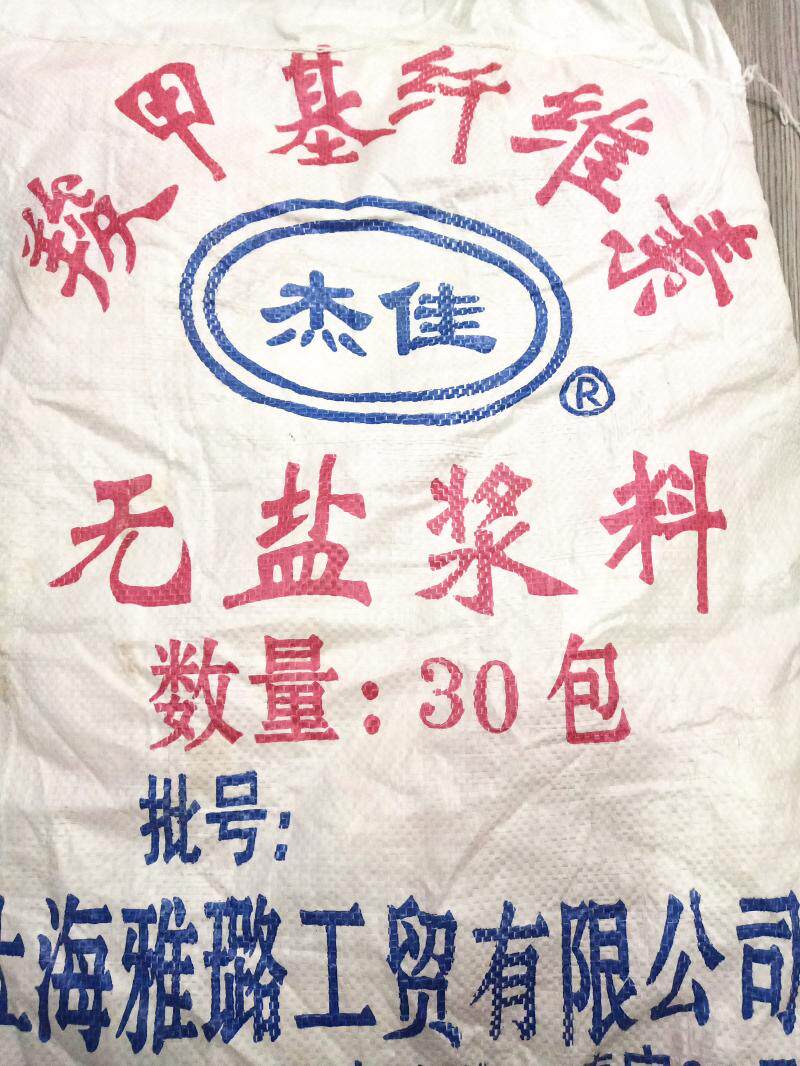 羧甲基纤维素
杰佳
®
无盐浆料
数量：30包
批号：
上海雅璐工贸有限公司